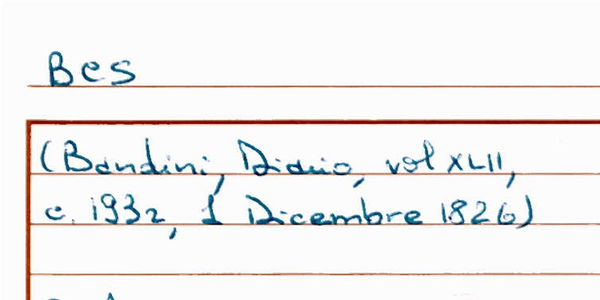 Bes
(Bandini, Diario, vol XLII,
c. 193r, 1 Dicembre 1826)